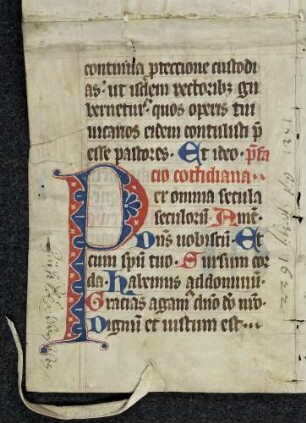 continua p̄teccione custodi
as· ut iisdem rectoribꝫ gu
bernetur· quos operis tui
uicarios eidem contulisti p̄
esse pastores· Et ideo· p̄fa
cio cottidiana··
Per omnia secula
seculorū· Amē·
Dōns uobiscū· Et
cum spū tuo· Sursum cor
da· habemus ad dominū·
Gracias agam̄ dn̄o dō nr̄o·
Dignum et iustum est···
1622